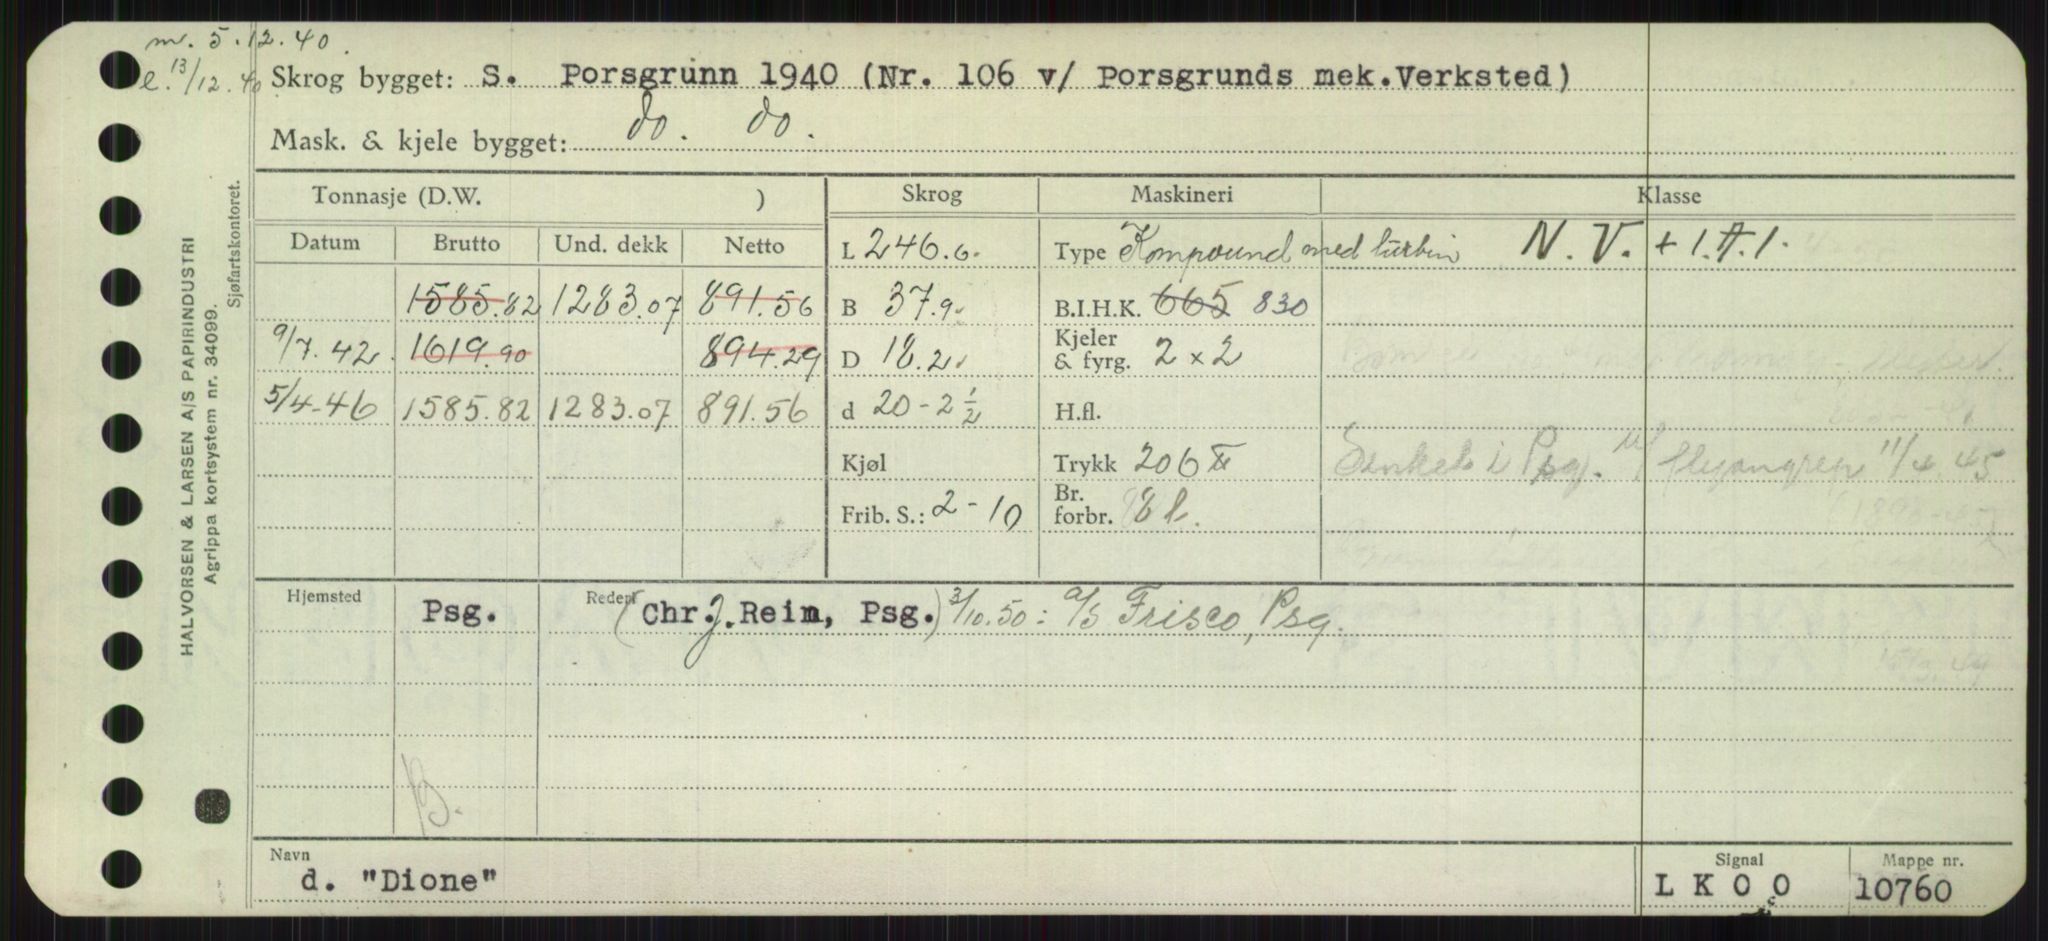 m. 5.12.40.
l. 13/12.40
Skrog bygget: S. Porsgrunn 1940 (Nr. 106 v/ Porsgrunds mek.Verksted)
Mask. & kjele bygget: do. do.
HALVORSEN & LARSEN A/S PAPIRINDUSTRI
Agrippa kortsystem nr. 34099.
Sjøfartskontoret.
Tonnasje (D.W. ) Skrog Maskineri Klasse
Datum Brutto Und. dekk Netto
L 246.6. Type Kompound med turbin N.V. + 1.A.1.
1585.82 1283.07 891.56 B 37.9. B.I.H.K. 665 830
9/7.42. 1619.90 894.29 D 18.2. Kjeler & fyrg. 2 x 2
5/4-46 1585.82 1283.07 891.56 d 20-2 1/2 H.fl.
Kjøl Trykk 206 Senket i Psg. v/ flyangrep 11/4.45
Frib. S.: 2-10 Br. forbr. 8 t.
Hjemsted Psg. Rederi (Chr.J.Reim, Psg.) 3/10.50: A/S Frisco, Psg.
B.
Navn Signal Mappe nr.
d. "Dione" L K O O 10760